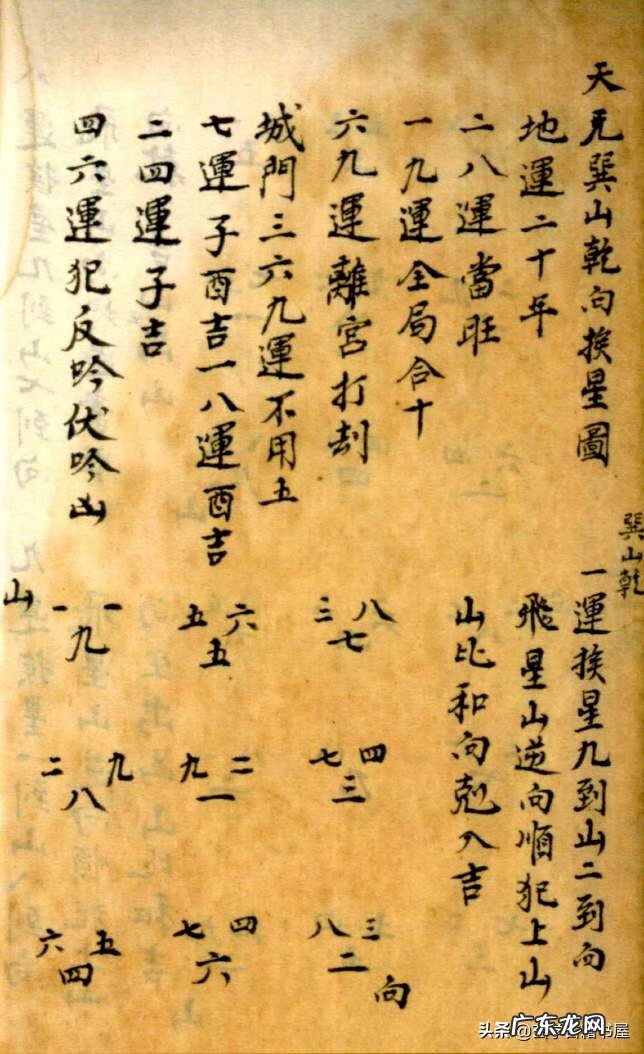 天元巽山乾向挨星圖
地運二十年
二八運當旺
一九運全局合十
六九運離宮打刧
城門三六九運不用五
七運子酉吉一八運酉吉
二四運子吉
四六運犯反吟伏吟山
巽山乾
一運挨星九到山二到向
飛星山逆向順犯上山
山比和向剋入吉
三 八
七
五 六
五
山
一 一
九
七 四
三
九 二
一
二 九
八
八 三
二
向
七 四
六
六 五
四
头条
书屋
广东龙网